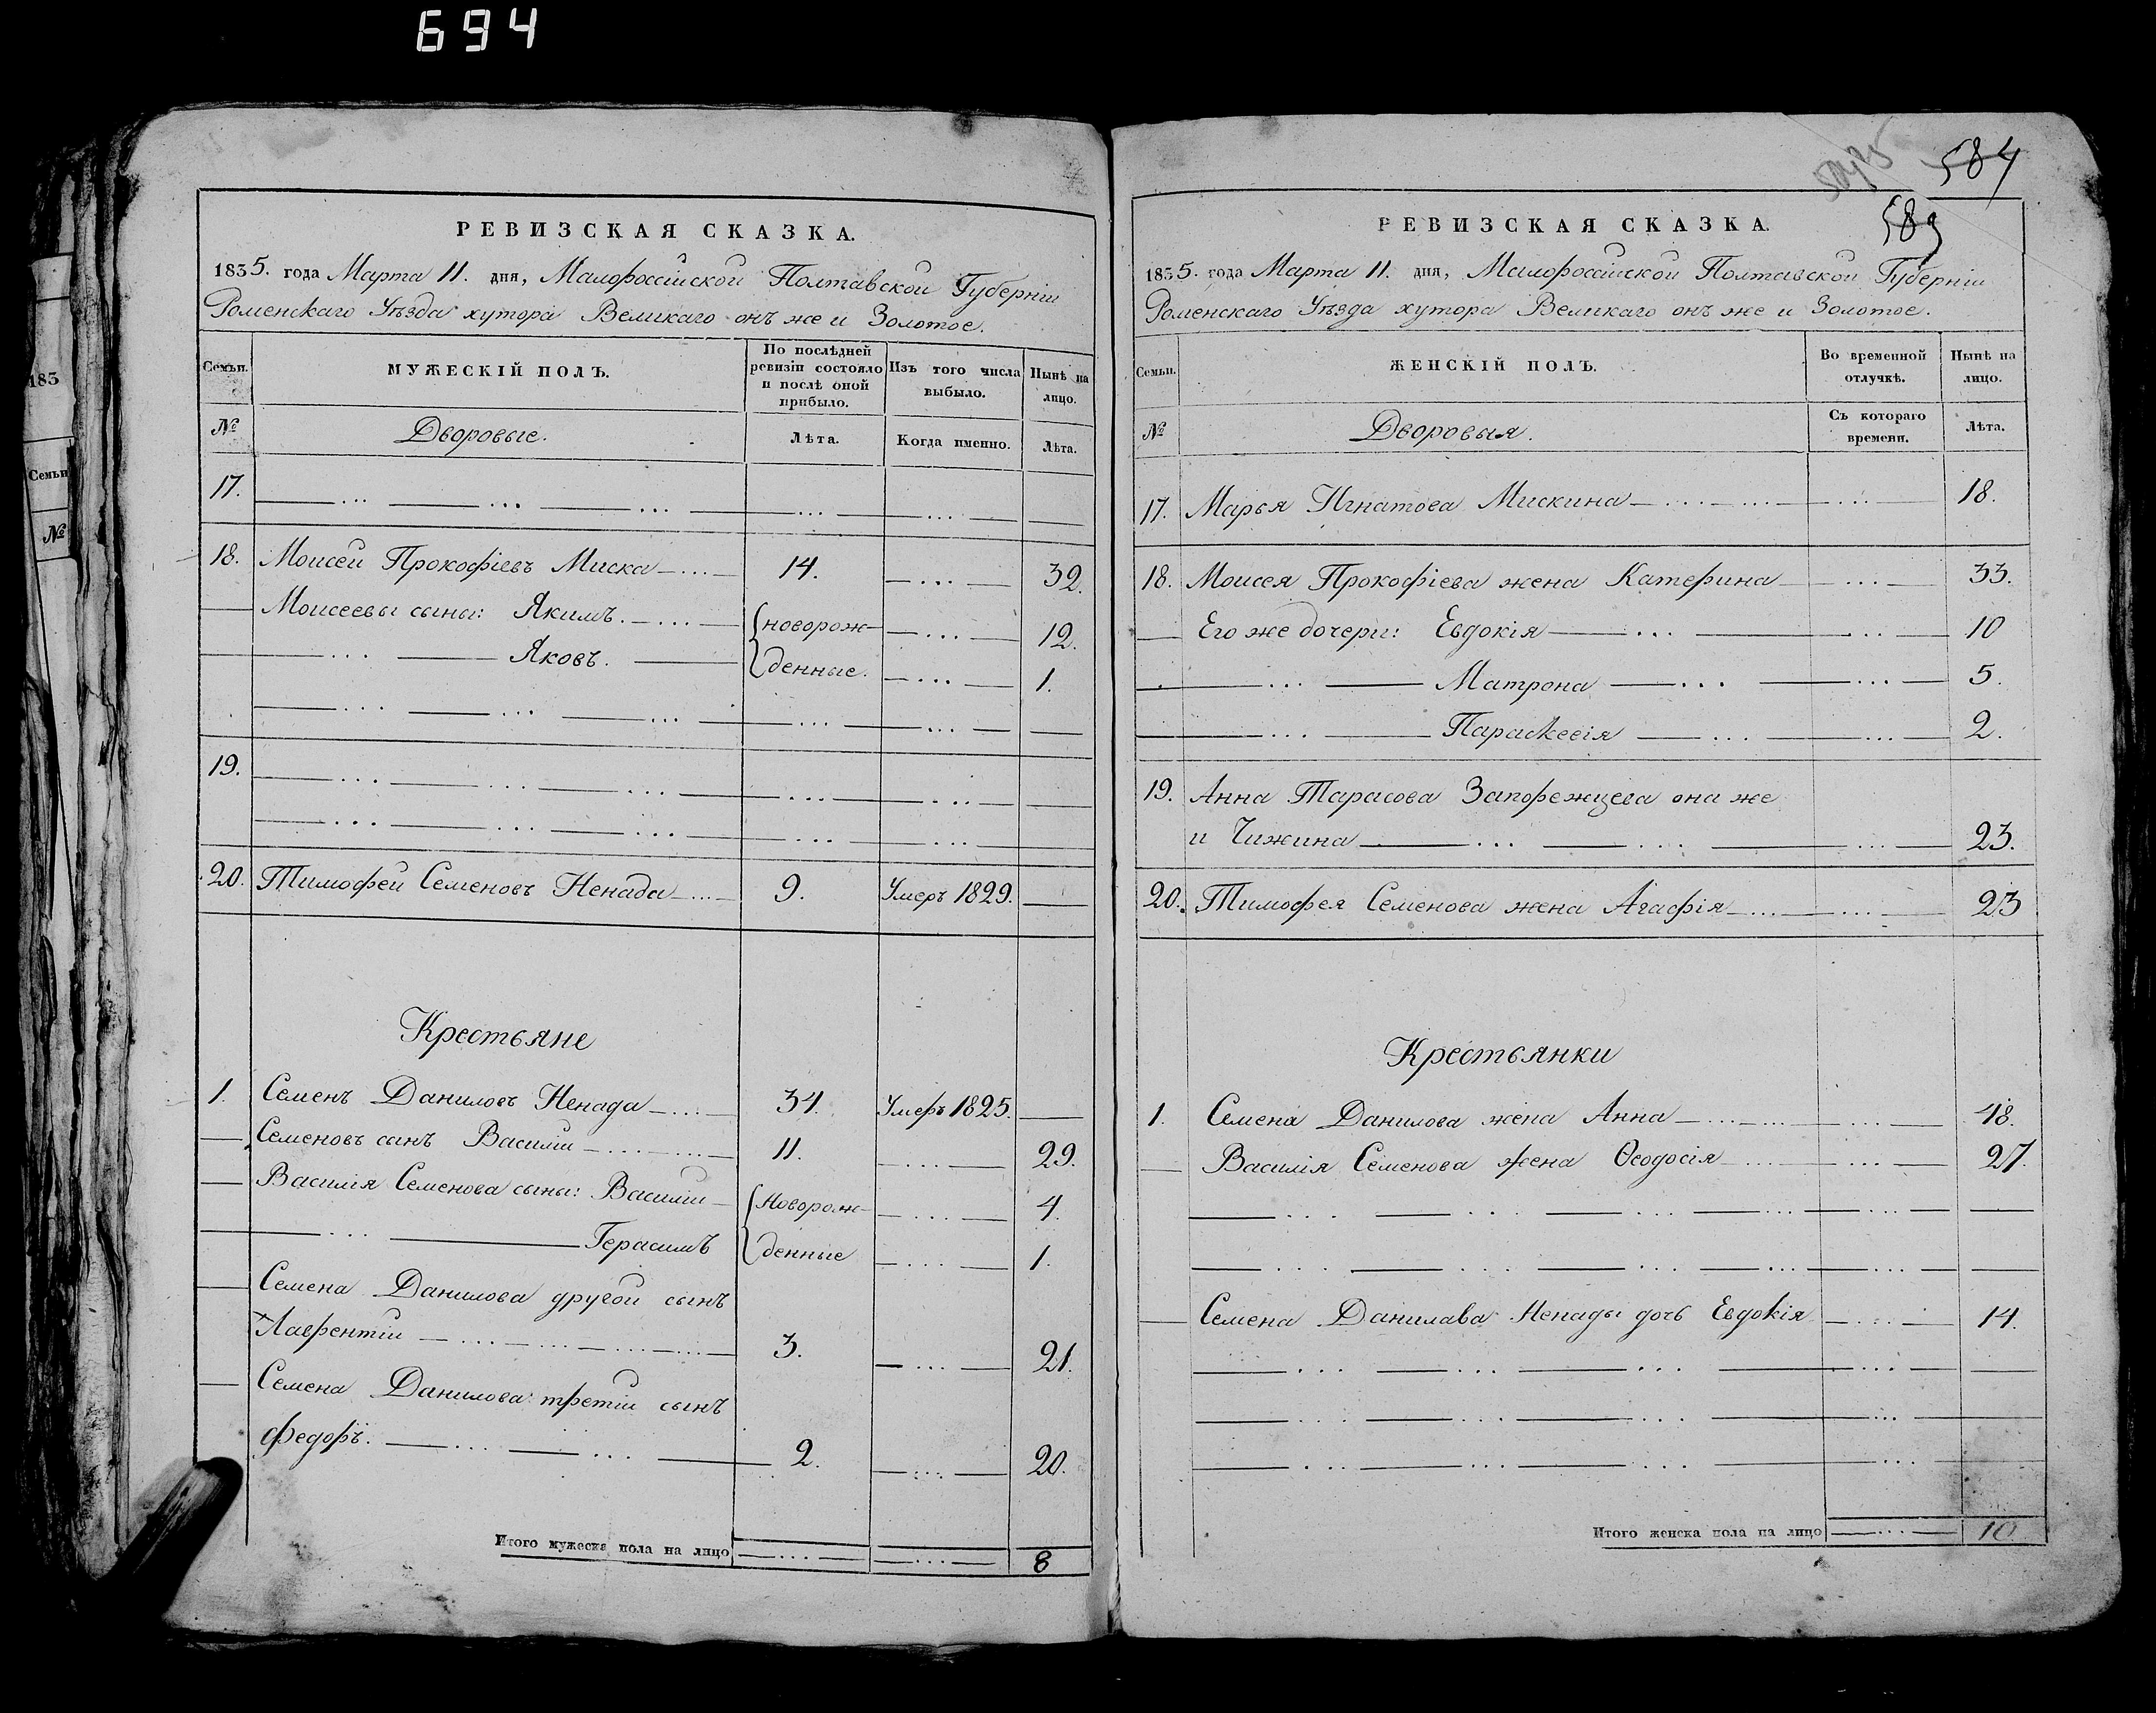 694
РЕВИЗСКАЯ СКАЗКА.
1835. года Марта 11. дня, Малороссійской Полтавской Губерніи
Роменскаго Уѣзда хутора Великаго онъ же и Золотое.
Семьи.
МУЖЕСКІЙ ПОЛЪ.
По послѣдней ревизіи состояло и послѣ оной прибыло.
Изъ того числа выбыло.
Нынѣ на лицо.
№
Дворовые.
Лѣта.
Когда именно.
Лѣта.
17.
18. Моисей Прокофіевъ Миска 14. 32.
Моисеевы сыны: Якимъ. новорож- 12.
Яковъ. денные. 1.
19.
20. Тимофей Семеновъ Ненада 9. Умеръ 1829.
Крестьяне
1. Семенъ Даниловъ Ненада 34. Умеръ 1825.
Семеновъ сынъ Василій 11. 29.
Василія Семенова сыны: Василій Новорож- 4.
Герасимъ денные 1.
Семена Данилова другой сынъ
Лаврентій 3. 21.
Семена Данилова третій сынъ
Федоръ. 2. 20.
Итого мужеска пола на лицо 8
584
589
РЕВИЗСКАЯ СКАЗКА.
1835. года Марта 11. дня, Малороссійской Полтавской Губерніи
Роменскаго Уѣзда хутора Великаго онъ же и Золотое.
Семьи.
ЖЕНСКІЙ ПОЛЪ.
Во временной отлучкѣ.
Нынѣ на лицо.
№
Дворовыя.
Съ котораго времени.
Лѣта.
17. Марья Игнатова Мискина 18.
18. Моисея Прокофіева жена Катерина 33.
Его же дочери: Евдокія 10
Матрона 5.
Параскевія 2.
19. Анна Тарасова Запорежцева она же
и Чижина 23.
20. Тимофея Семенова жена Агафія 23
Крестьянки
1. Семена Данилова жена Анна 48.
Василія Семенова жена Ѳеодосія 27.
Семена Данилава Ненады дочь Евдокія 14.
Итого женска пола на лицо 10.
185
Семьи
№